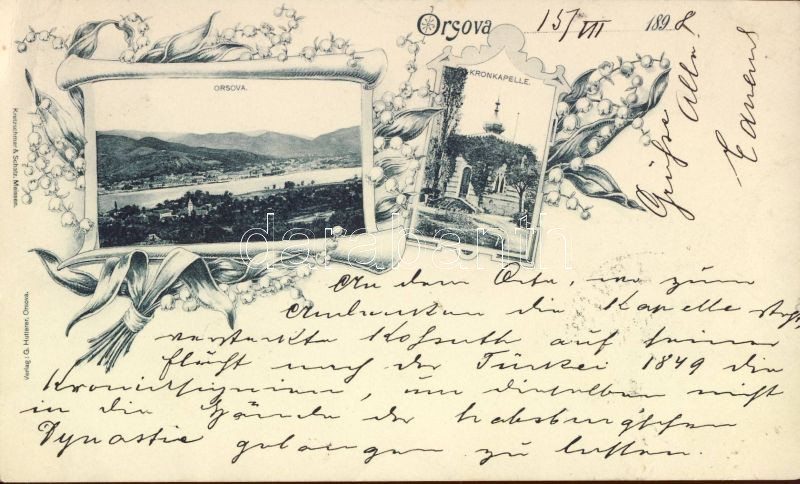 Orsova 15/VII 1898
ORSOVA.
KRONKAPELLE.
Grüsse Alle
Kretzschmar & Schatz, Meissen.
Verlag: G. Hutterer, Orsova.
darabanth
An dem Orte, wo zum
Andenken die Kapelle steht
versteckte Kossuth auf seiner
flucht nach der Türkei 1849 die
Kroninsignien, um dieselben nicht
in die Hände der habsburgischen
Dynastie gelangen zu lassen.